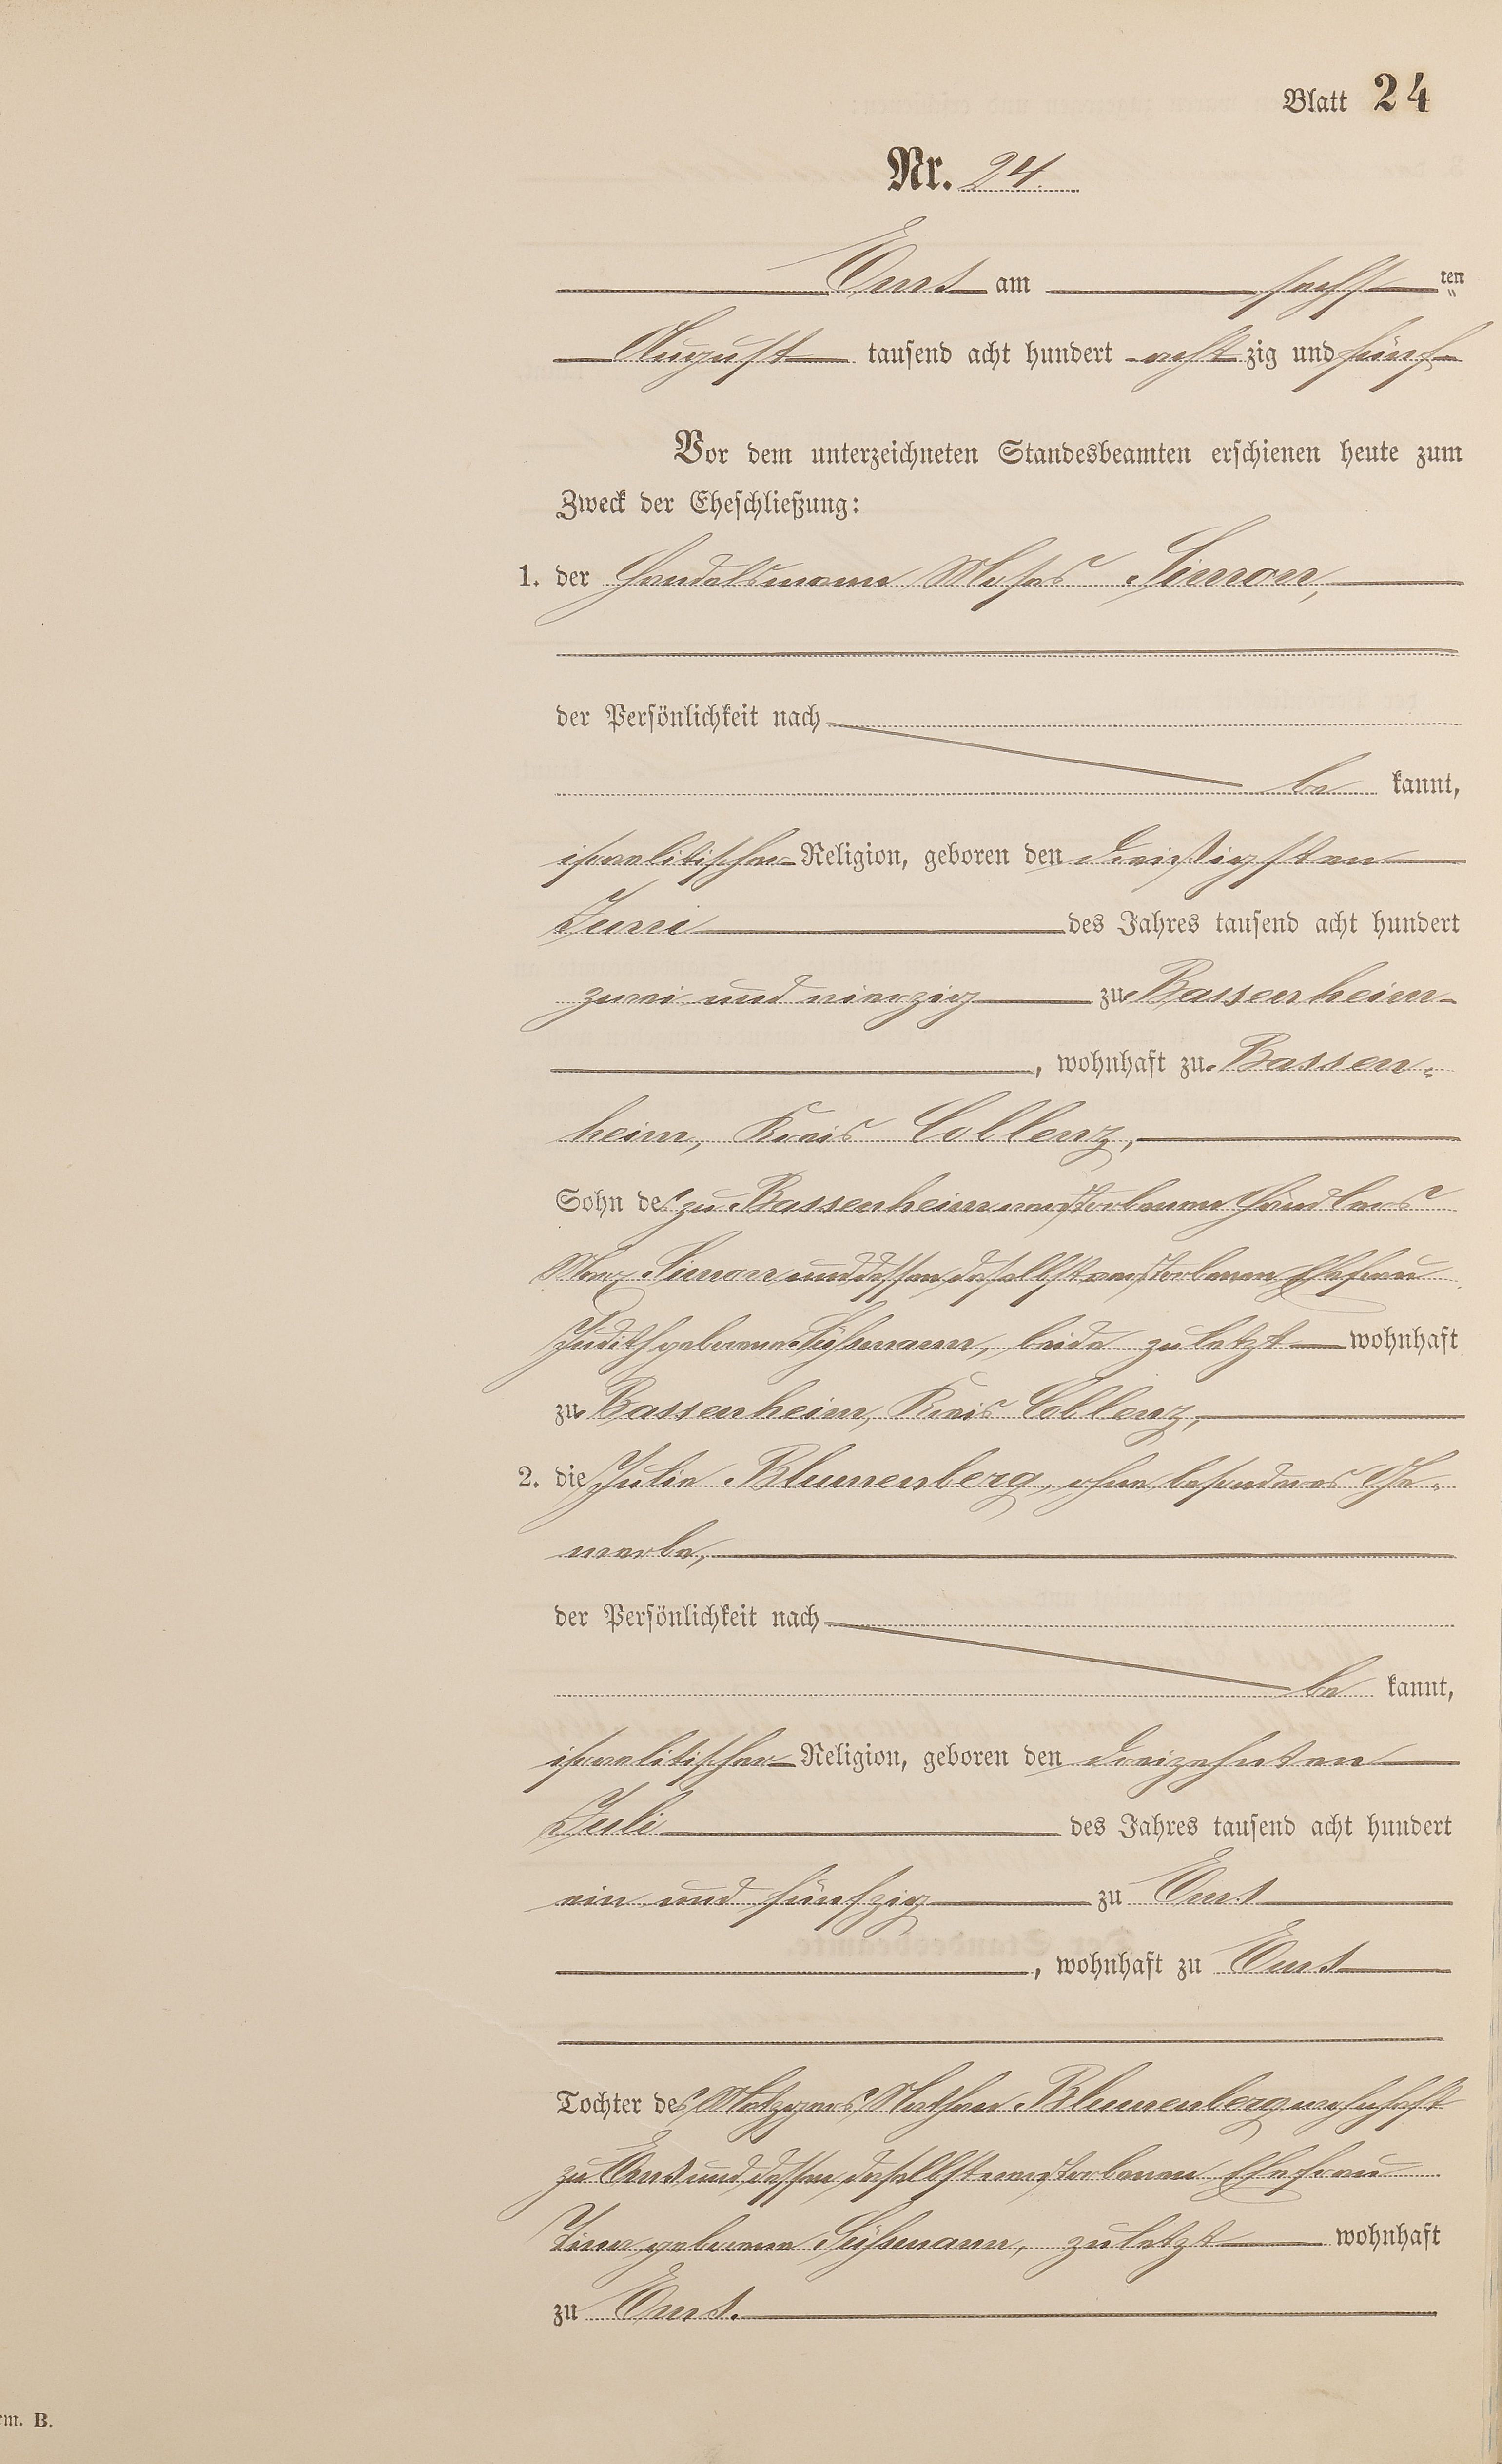 Blatt 24
Nr. 24.
Ems am sechsten
August tausend acht hundert acht zig und fünf
Vor dem unterzeichneten Standesbeamten erschienen heute zum
Zweck der Eheschließung:
1. der Handelsmann Moses Simon,
der Persönlichkeit nach
be kannt,
israelitischer Religion, geboren den dreißigsten
Juni des Jahres tausend acht hundert
zwei und vierzig zu Bassenheim
, wohnhaft zu Bassen-
heim, Kreis Coblenz,
Sohn des zu Bassenheim verstorbenen Händlers
Marx Simon und dessen daselbst verstorbenen Ehefrau
Judith geborene Süßmann, beide zuletzt wohnhaft
zu Bassenheim, Kreis Coblenz,
2. die Julie Blumenberg, ohne besonderes Ge-
werbe,
der Persönlichkeit nach
be kannt,
israelitischer Religion, geboren den dreizehnten
Juli des Jahres tausend acht hundert
ein und fünfzig zu Ems
, wohnhaft zu Ems
Tochter des Metzgers Nathan Blumenberg wohnhaft
zu Ems und dessen daselbst verstorbenen Ehefrau
geborene Süßmann, zuletzt wohnhaft
zu Ems.
rm. B.